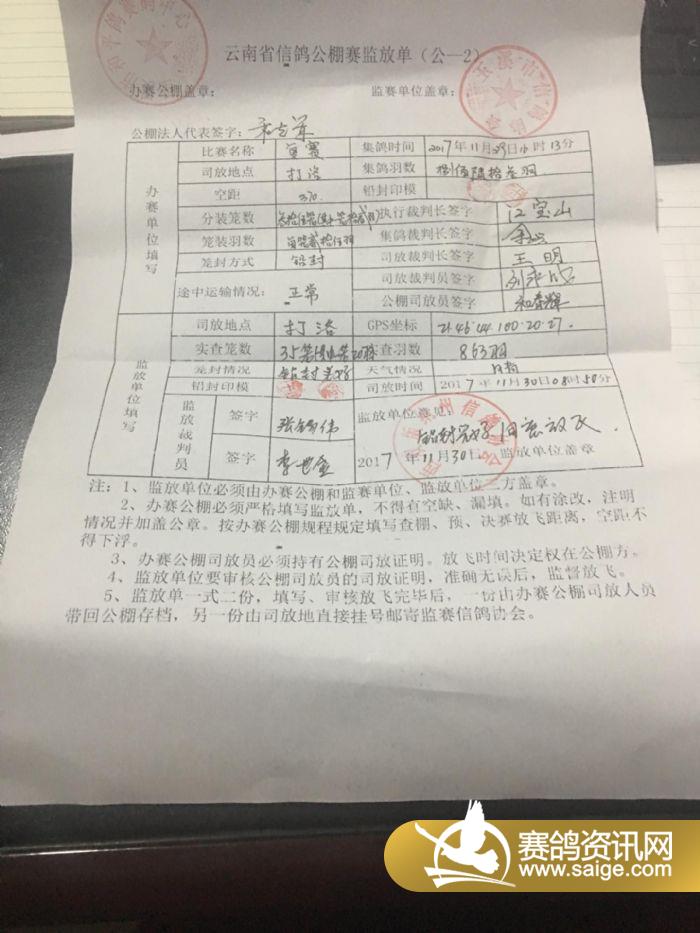 云南省信鸽公棚赛监放单（公—2）
办赛公棚盖章： 监赛单位盖章：
玉溪市信鸽协会
公棚法人代表签字：
办赛单位填写
比赛名称 集鸽时间 2017年11月29日 时13分
司放地点 打洛 集鸽羽数
空距 370 铅封印模
分装笼数 执行裁判长签字 江宝山
笼装羽数 集鸽裁判长签字
笼封方式 铅封 司放裁判长签字 王明
途中运输情况： 正常 司放裁判员签字
公棚司放员签字 和春辉
监放单位填写
司放地点 打洛 GPS坐标 21.46.44 100.20.27.
实查笼数 实查羽数 863羽
笼封情况 铅封完好 天气情况
铅封印模 司放时间 2017年11月30日08时50分
监放裁判员 签字 张锡伟 监放单位意见：
铅封完好同意放飞
签字 李世金 2017年11月30日 监放单位盖章
注：1、监放单位必须由办赛公棚和监赛单位、监放单位三方盖章。
2、办赛公棚必须严格填写监放单，不得有空缺、漏填。如有涂改，注明
情况并加盖公章。按办赛公棚规程规定填写查棚、预、决赛放飞距离，空距不
得下浮。
3、办赛公棚司放员必须持有公棚司放证明。放飞时间决定权在公棚方。
4、监放单位要审核公棚司放员的司放证明，准确无误后，监督放飞。
5、监放单一式二份，填写、审核放飞完毕后，一份由办赛公棚司放人员
带回公棚存档，另一份由司放地直接挂号邮寄监赛信鸽协会。
赛鸽资讯网
www.saige.com